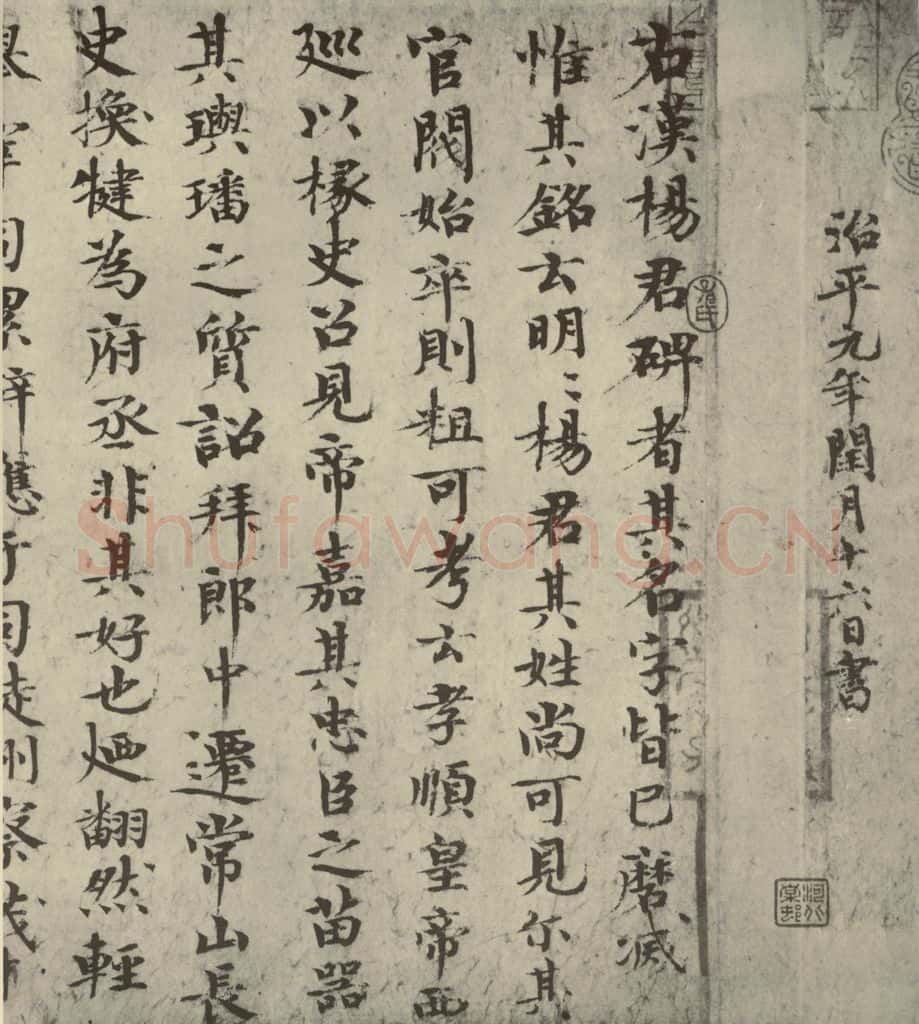 治平元年閏月十六日書
右漢楊君碑者其名字皆已磨滅
惟其銘云明〻楊君其姓尚可見尓其
官閥始卒則粗可考云孝順皇帝西
廵以椽史召見帝嘉其忠臣之苗器
其璵璠之質詔拜郎中遷常山長
史換犍為府丞非其好也廼翻然輕
司累辟應于司徒州察茂
Shufawang.CN